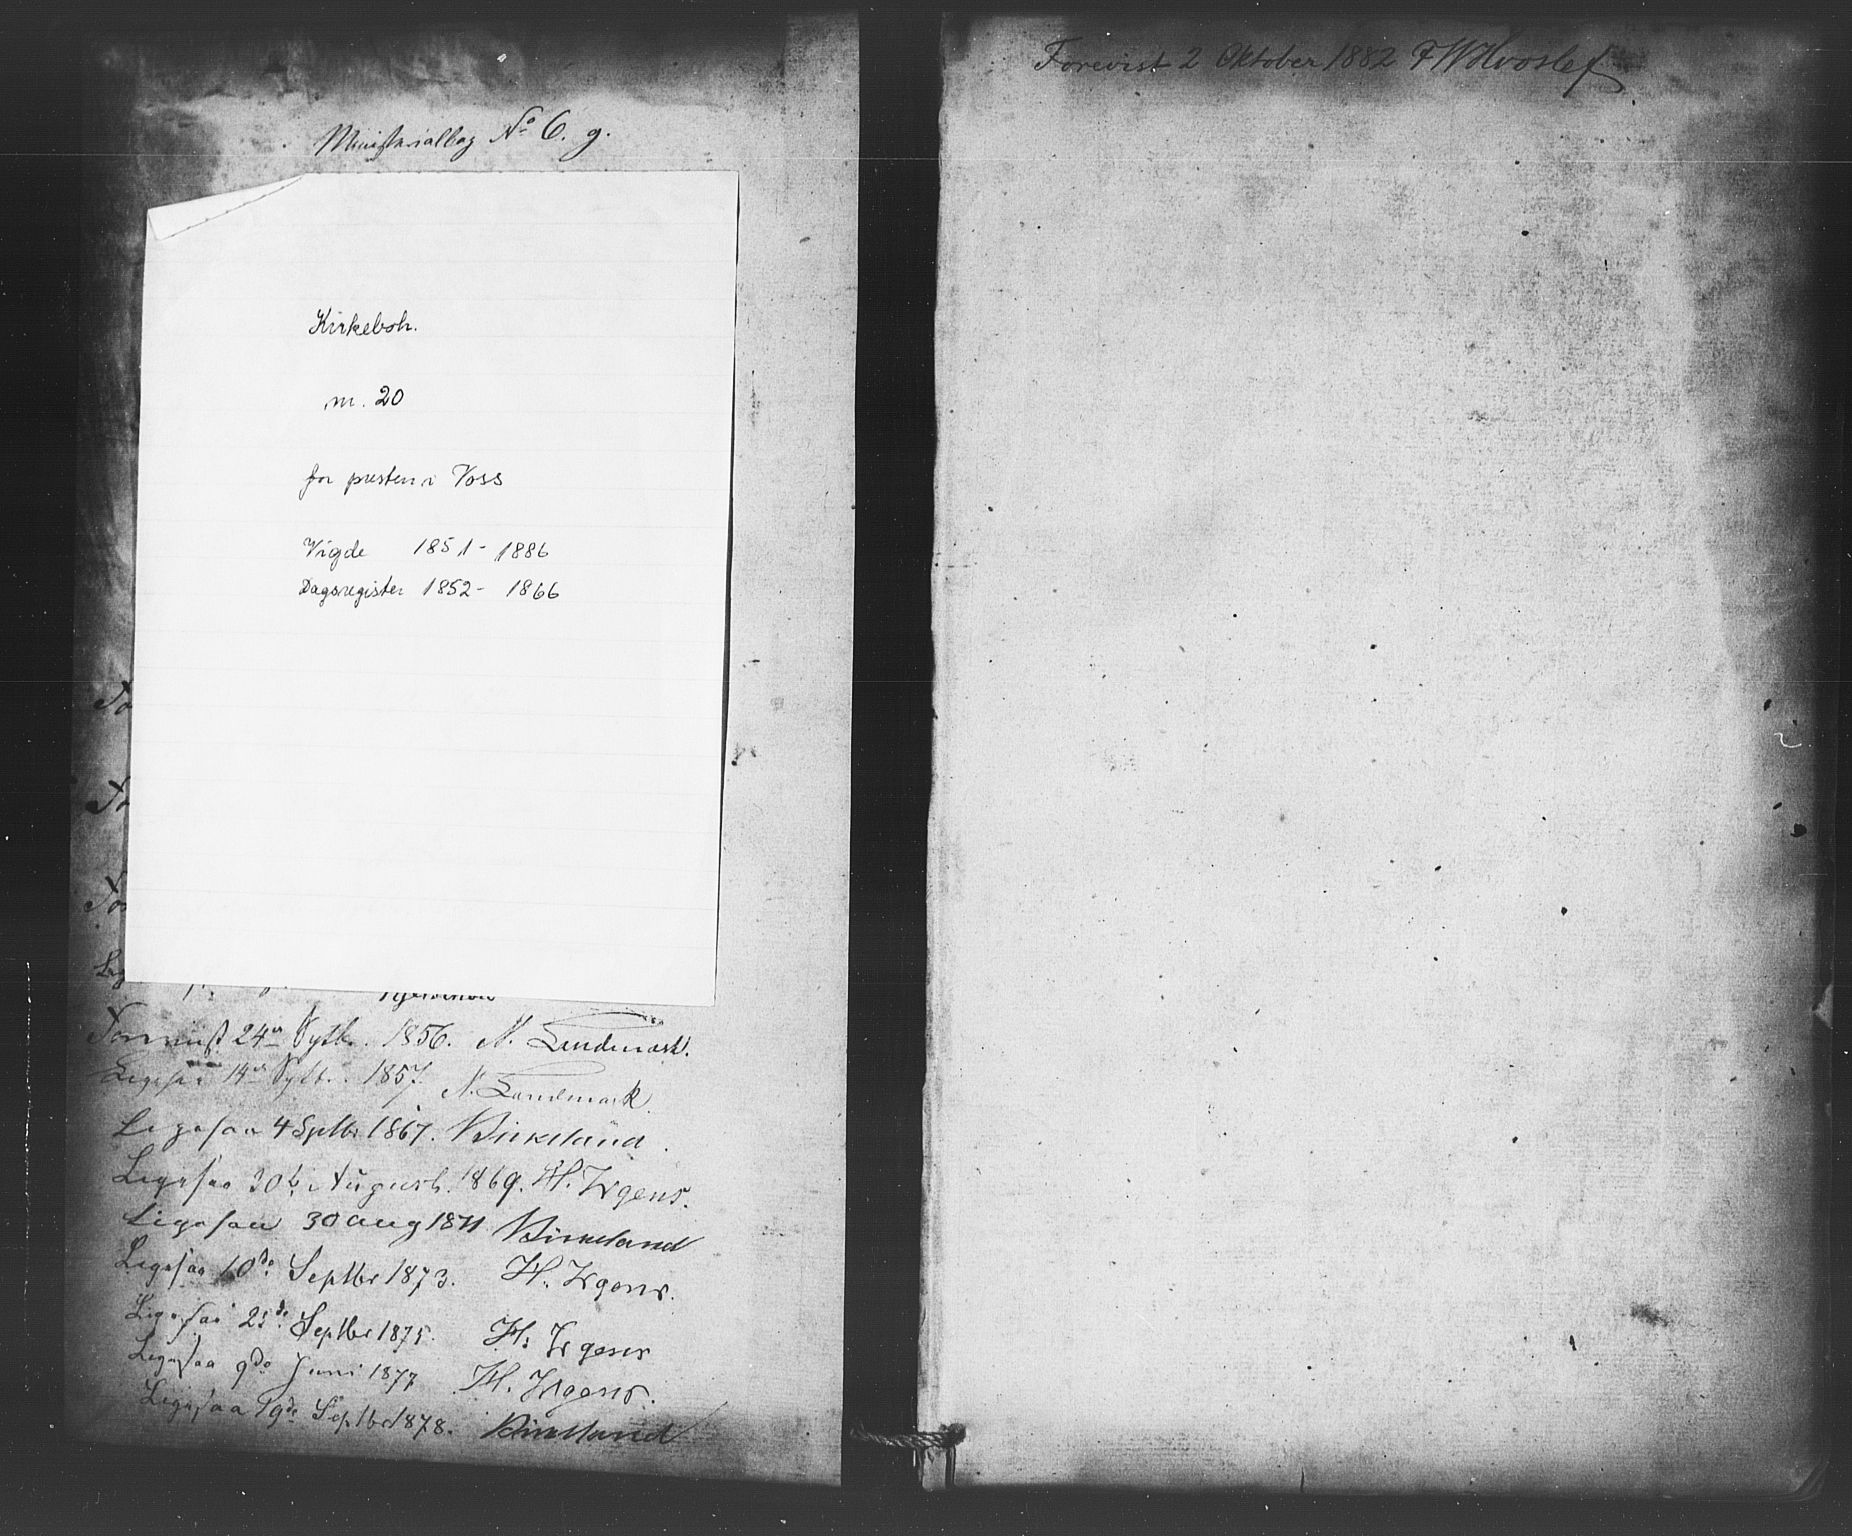 Ministerialbog No 6. g.
Kirkebok.
nr. 20
for presten i Voss
Vigde 1851 - 1886
Dagsregister 1852 - 1866
To
Fo
Fo
Lig
Forevist 24de Septbr. 1856. N. Landmark.
Ligesaa 14de Septb. 1857. N. Landmark.
Ligesaa 4 Septbr 1867. Birkeland.
Ligesaa 30te August. 1869. H. Irgens.
Ligesaa 30 aug 1871 Birkeland
Ligesaa 10de Septbr 1873. H. Irgens.
Ligesaa 23de Septbr 1875. H. Irgens
Ligesaa 9de Juni 1877 H. Irgens.
Ligesaa 19de Septbr 1878. Birkeland
Forevist 2 Oktober 1882 F W Hvoslef